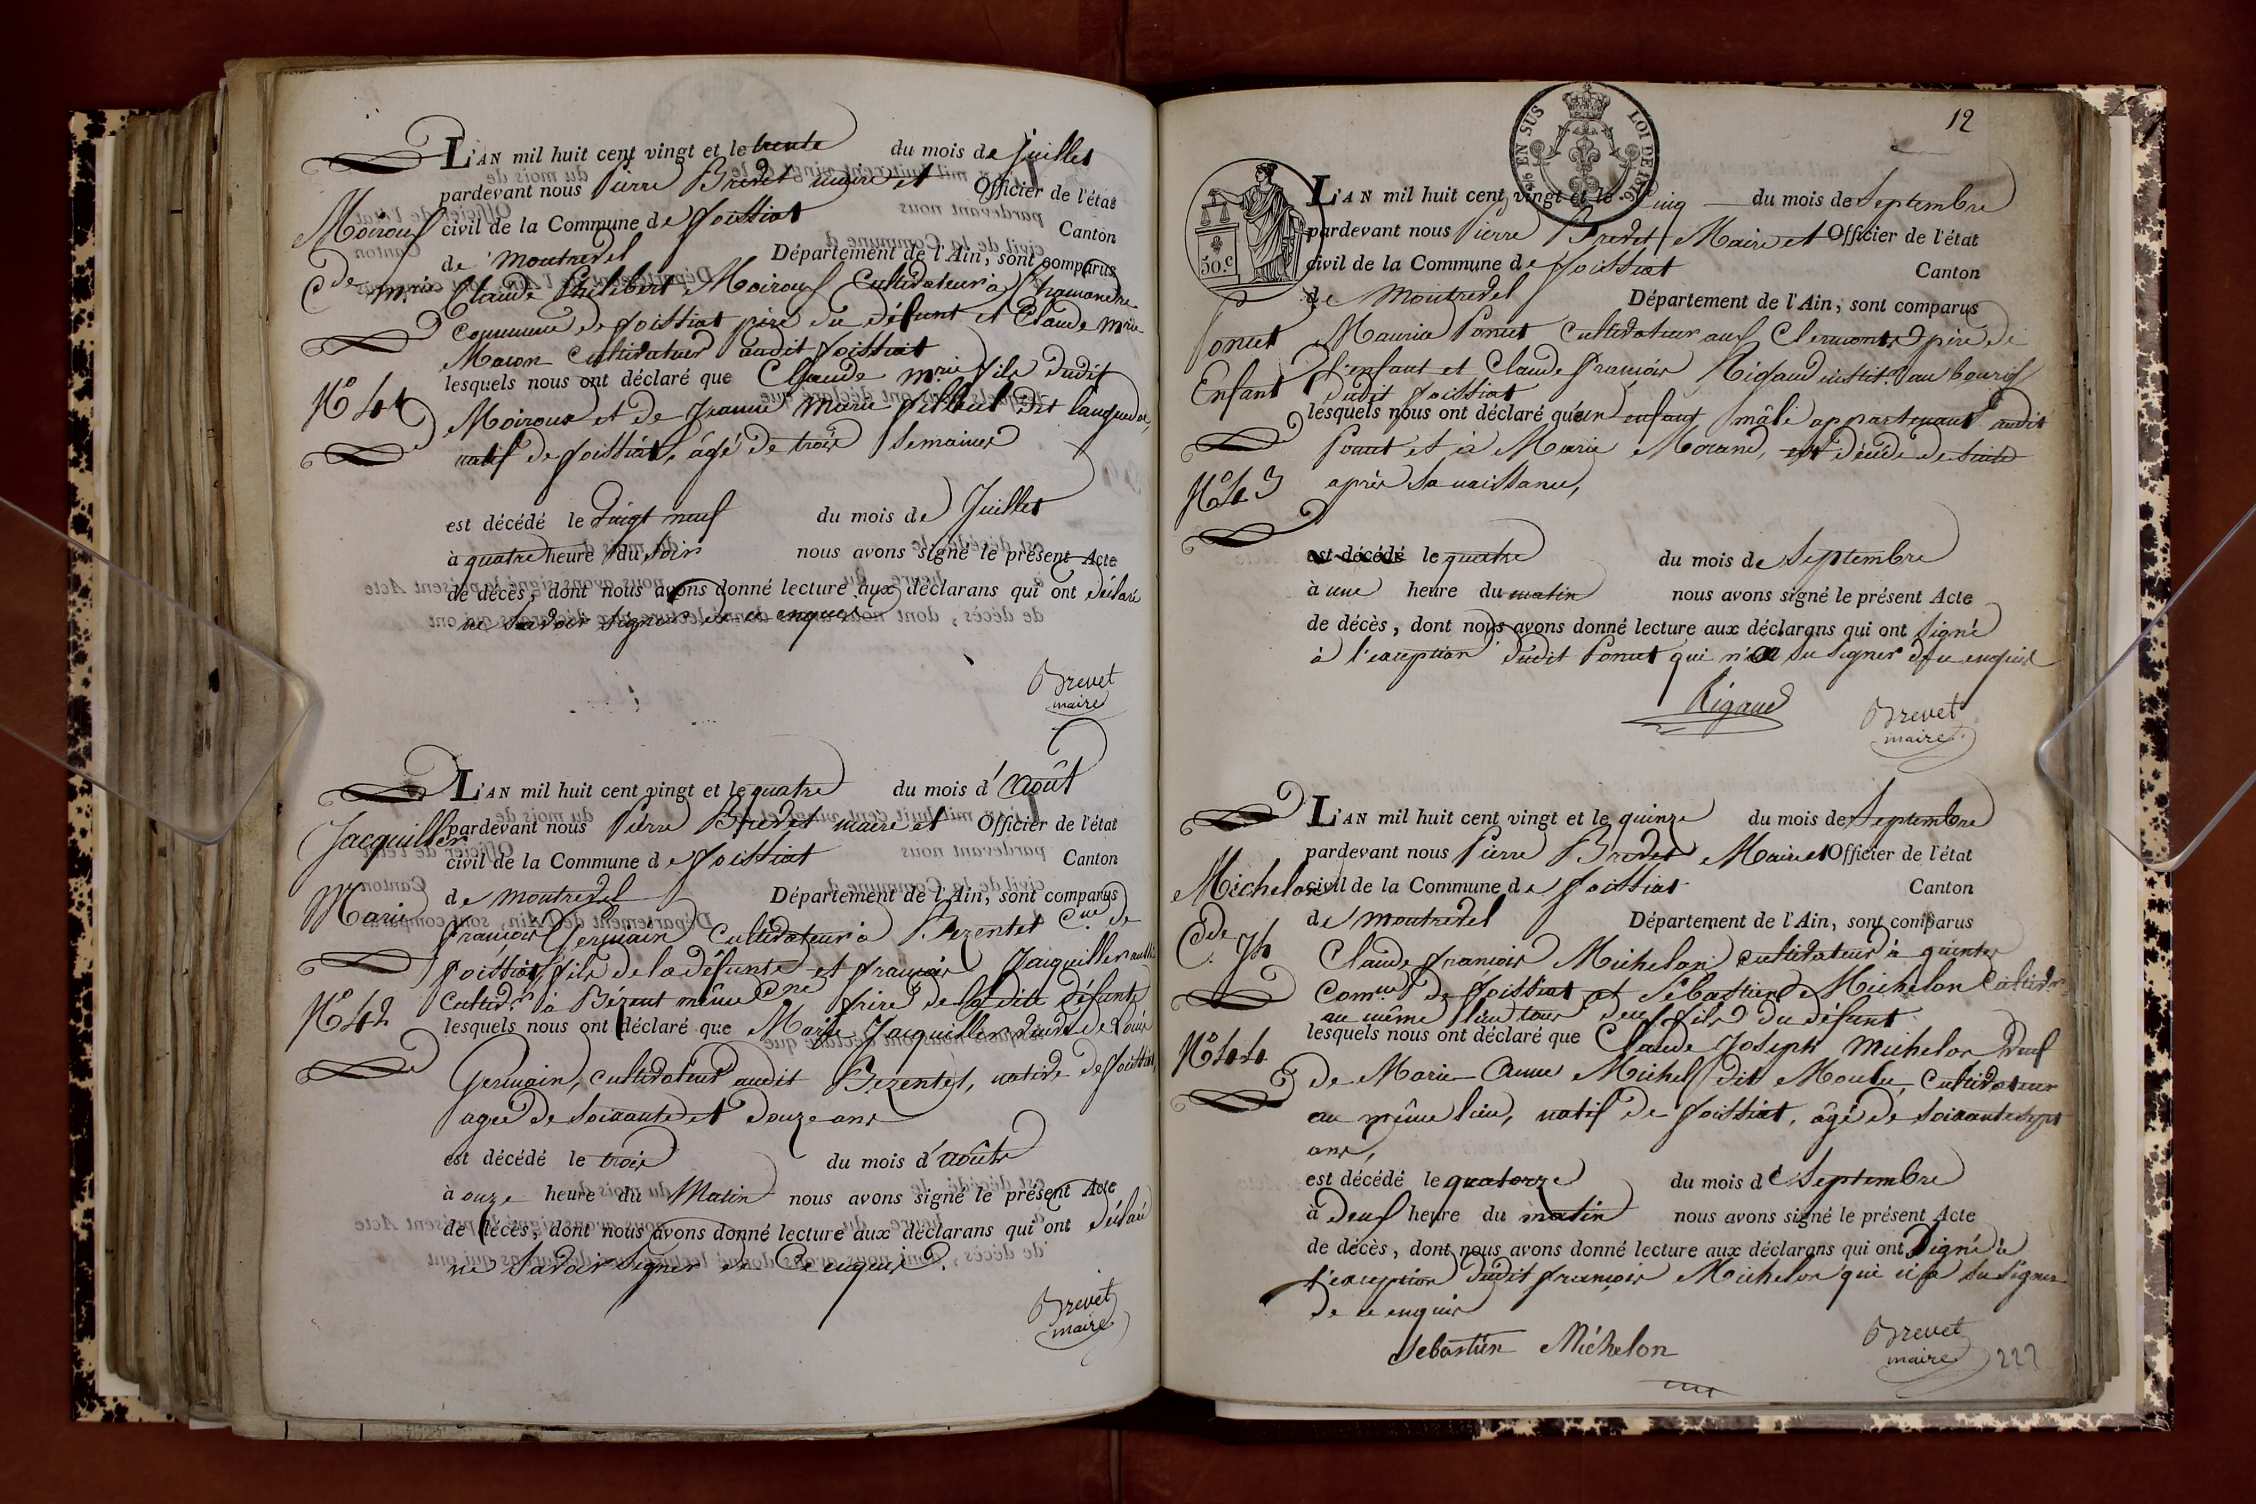 L'AN mil huit cent vingt et le trente du mois de Juillet
pardevant nous Pierre Brevet maire et Officier de l'état
civil de la Commune de foissiat Canton
de Montrevel Département de l'Ain, sont comparus
Claude Philibert Moiroux Cultivateur à
Commune de foissiat père du défunt et Claude Mrie
Macon Cultivateur audit foissiat
lesquels nous ont déclaré que Claude Mrie fils dudit
Moiroux et de Jeanne Marie dit
natif de foissiat, âgé de trois Semaines
est décédé le vingt neuf du mois de Juillet
à quatre heure du Soir nous avons signé le présent Acte
de décès, dont nous avons donné lecture aux déclarans qui ont déclaré
ne Savoir Signer de ce enquis
Brevet
maire
Moiroux
Cde mrie
No 41
L'AN mil huit cent vingt et le quatre du mois d'août
pardevant nous Pierre Brevet maire et Officier de l'état
civil de la Commune de foissiat Canton
de Montrevel Département de l'Ain, sont comparus
françois Germain Cultivateur à Bezentet Cne de
foissiat, fils de la défunte et françois Jacquiller aussi
Cultivr à même Cne frère de ladite défunte
lesquels nous ont déclaré que Marie Jacquiller veuve de Louis
Germain, cultivateur audit Bezentet, native de foissiat
agée de Soixante et douze ans
est décédé le trois du mois d'août
à onze heure du Matin nous avons signé le présent Acte
de décès, dont nous avons donné lecture aux déclarans qui ont déclaré
ne Savoir Signer de Ce enquis.
Brevet
maire
Jacquiller
Marie
No 42
12
5/6 EN SUS LOI DE 1816.
50.c
L'AN mil huit cent vingt et le Cinq du mois de Septembre
pardevant nous Pierre Brevet Maire et Officier de l'état
civil de la Commune de foissiat Canton
de Montrevel Département de l'Ain, sont comparus
Maurice Poncet Cultivateur aux Clermonts père de
l'enfant et Claude françois Rigaud instit. au bourg
dudit foissiat
lesquels nous ont déclaré qu'un enfant mâle appartenant audit
Poncet et à Marie Morand, est décédé de suite
après sa naissance,
est décédé le quatre du mois de Septembre
à une heure du matin nous avons signé le présent Acte
de décès, dont nous avons donné lecture aux déclarans qui ont Signé
à l'exception dudit Poncet qui n'a su signer de ce enquis
Rigaud
Brevet
maire
Poncet
Enfant
No 43
L'AN mil huit cent vingt et le quinze du mois de Septembre
pardevant nous Pierre Brevet Maire et Officier de l'état
civil de la Commune de foissiat Canton
de Montrevel Département de l'Ain, sont comparus
Claude françois Michelon cultivateur à
Comne de foissiat et Sébastien Michelon Cultivr
au même lieu tous deux fils du défunt
lesquels nous ont déclaré que Claude Joseph Michelon veuf
de Marie Anne Michel dit Cultivateur
au même lieu, natif de foissiat, âgé de soixante sept
ans,
est décédé le quatorze du mois d e Septembre
à deux heure du matin nous avons signé le présent Acte
de décès, dont nous avons donné lecture aux déclarans qui ont Signé à
l'exception dudit françois Michelon qui n'a su signer
de ce enquis
Sebastien Michelon
Brevet
maire
222
Michelon
Cde Jh
No 44